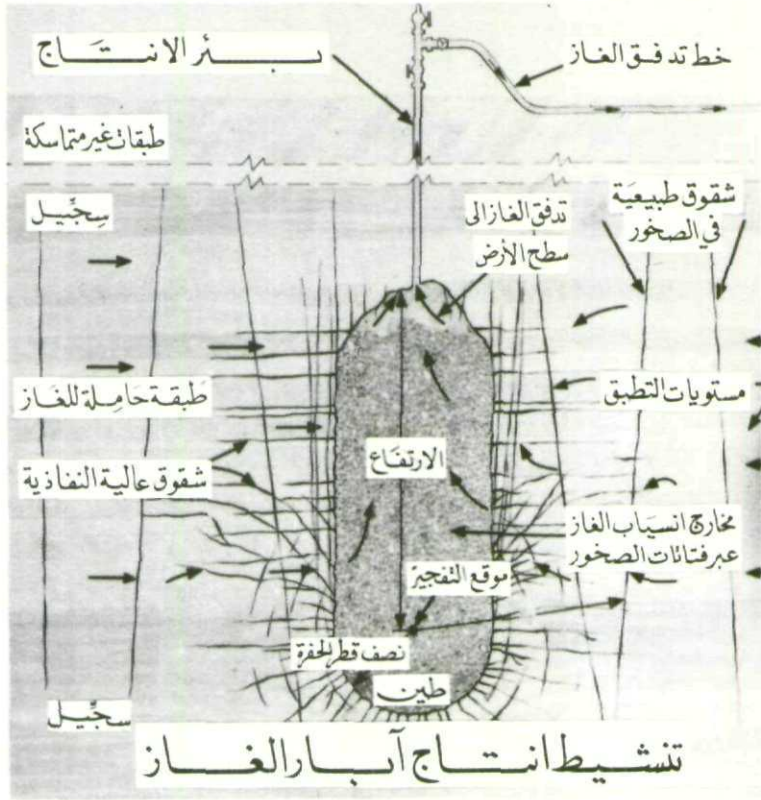 بئر الانتاج
خط تدفق الغاز
طبقات غير متماسكة
سجّيل
تدفق الغاز الى
سطح الأرض
شقوق طبيعية
في الصخور
طبقة حاملة للغاز
مستويات التطبق
الارتفاع
شقوق عالية النفاذية
مخارج انسياب الغاز
عبر فتاتات الصخور
موقع التفجير
نصف قطر الحفرة
طين
سجّيل
تنشيط انتاج آبار الغاز